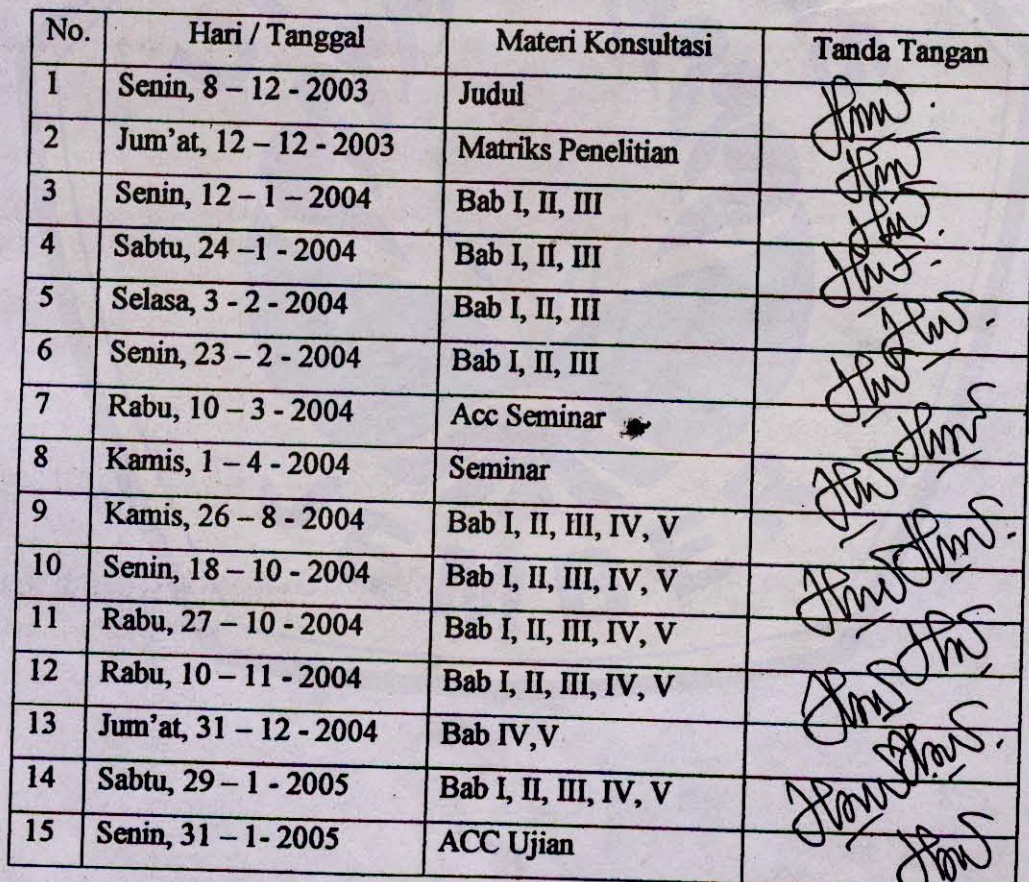 No. Hari / Tanggal Materi Konsultasi Tanda Tangan
1 Senin, 8 – 12 - 2003 Judul
2 Jum'at, 12 – 12 - 2003 Matriks Penelitian
3 Senin, 12 – 1 – 2004 Bab I, II, III
4 Sabtu, 24 –1 - 2004 Bab I, II, III
5 Selasa, 3 - 2 - 2004 Bab I, II, III
6 Senin, 23 – 2 - 2004 Bab I, II, III
7 Rabu, 10 – 3 - 2004 Acc Seminar
8 Kamis, 1 – 4 - 2004 Seminar
9 Kamis, 26 – 8 - 2004 Bab I, II, III, IV, V
10 Senin, 18 – 10 - 2004 Bab I, II, III, IV, V
11 Rabu, 27 – 10 - 2004 Bab I, II, III, IV, V
12 Rabu, 10 – 11 - 2004 Bab I, II, III, IV, V
13 Jum'at, 31 – 12 - 2004 Bab IV,V
14 Sabtu, 29 – 1 - 2005 Bab I, II, III, IV, V
15 Senin, 31 – 1- 2005 ACC Ujian